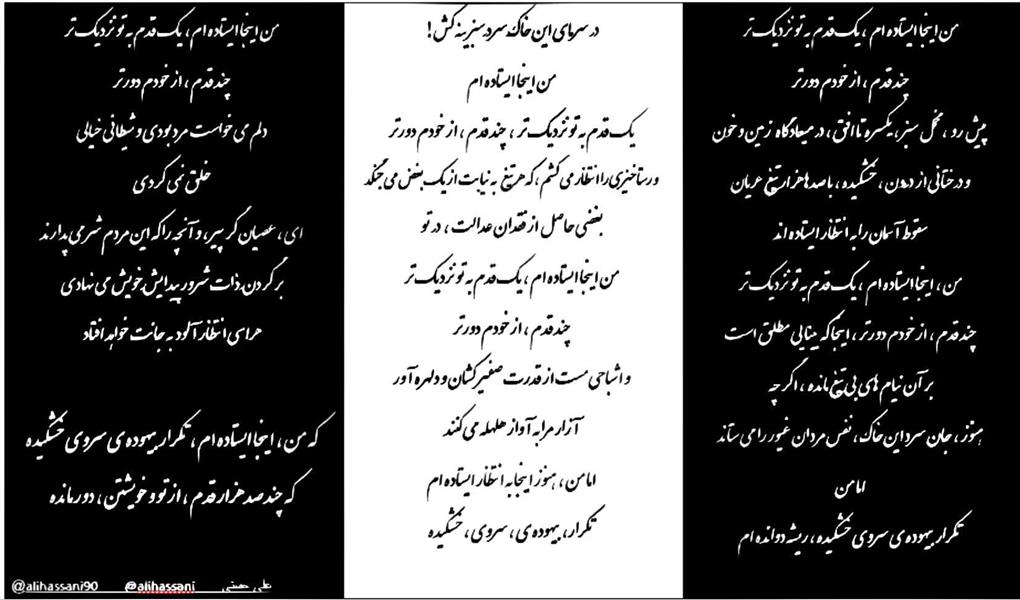 من اینجا ایستاده ام ، یک قدم به تو نزدیک تر
چند قدم ، از خودم دورتر
پیش رو ، مخمل سبز، یکسره تا افق ، در میعادگاه زمین و خون
و درختانی از درون ، خشکیده ، با صدها هزار تیغ عریان
سقوط آسمان را به انتظار ایستاده اند
من ، اینجا ایستاده ام ، یک قدم به تو نزدیک تر
چند قدم ، از خودم دورتر ، اینجا که بینایی مطلق است
بر آن نیام های بی تیغ مانده ، اگر چه
هنوز ، جان سرد این خاک ، نفس مردان غیور را می ستاند
اما من
تکرار بیهوده ی سروی خشکیده ، ریشه دوانده ام
در سرمای این خاک سرد سبزینه کش!
من اینجا ایستاده ام
یک قدم به تو نزدیک تر ، چند قدم ، از خودم دورتر
و رستاخیزی را انتظار می کشم ،که هر تیغ به نیابت از یک بغض می جنگد
بغضی حاصل از فقدان عدالت ، در تو
من اینجا ایستاده ام ، یک قدم به تو نزدیک تر
چند قدم ، از خودم دورتر
و اشباحی مست از قدرت صفیر کشان و دلهره آور
آزار مرا به آواز هلهله می کنند
اما من ، هنوز اینجا به انتظار ایستاده ام
تکرار، بیهوده ی ، سروی ، خشکیده
من اینجا ایستاده ام ، یک قدم به تو نزدیک تر
چند قدم ، از خودم دورتر
دلم می خواست مرد بودی و شیطانی خیالی
خلق نمی کردی
ای ، عصیان گر پیر، و آنچه را که این مردم شر می پندارند
بر گردن ذات شرور پیدایش خویش می نهادی
هراسی انتظار آلود به جانت خواهد افتاد
که من ، اینجا ایستاده ام ، تکرار بیهوده ی سروی خشکیده
که چند صد هزار قدم ، از تو و خویشتن ، دور مانده
علی حسنی @alihassani @alihassani90